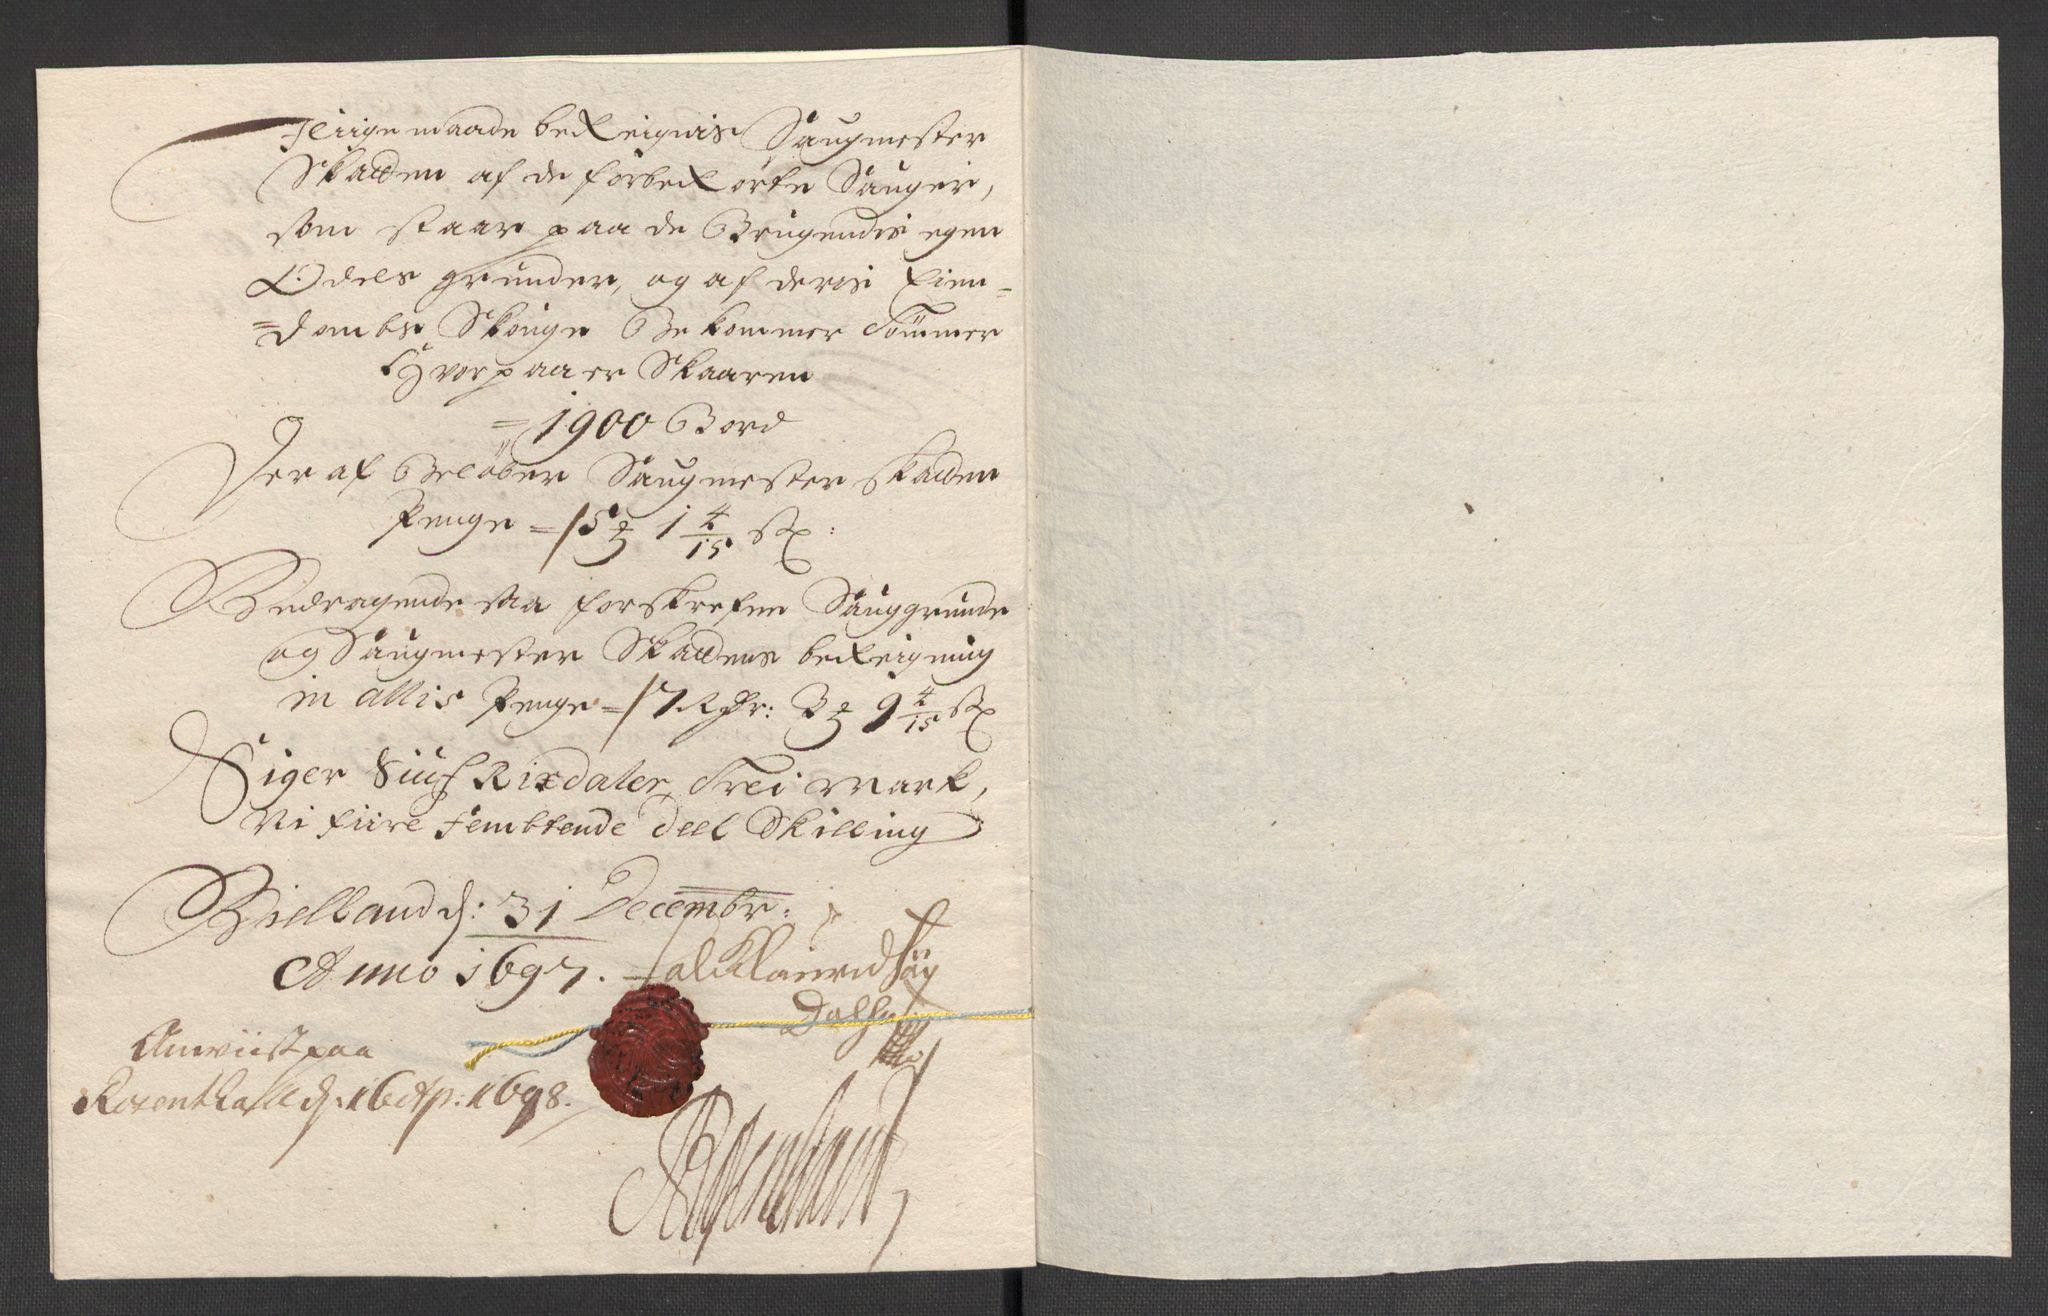 I liige maade bereignis Saugmester
Skatten af de forberørte Sauger,
som staar paa de Brugendis egen
Odels grunder, og af deris Eien-
=dombs Skouge Bekommer Tømmer
Hvorpaa er Skaaren
= 1900 Bord
Der af Beløber Saugmester skatten
Penge = 15 1 4/15 s:
Bedragende saa forskrefne Sauggrunde
og Saugmester Skattens bereigning
in allis Penge = 17 Rdr: 3 9 4/15 s
Siger Siuf Rixdaler, Trei Mark,
Ni fiire Fembtende deel Skilling
Bielland d: 31 Decembr:
Anno 1697.
Anviist paa
Rosenthall d: 16 Ap: 1698.